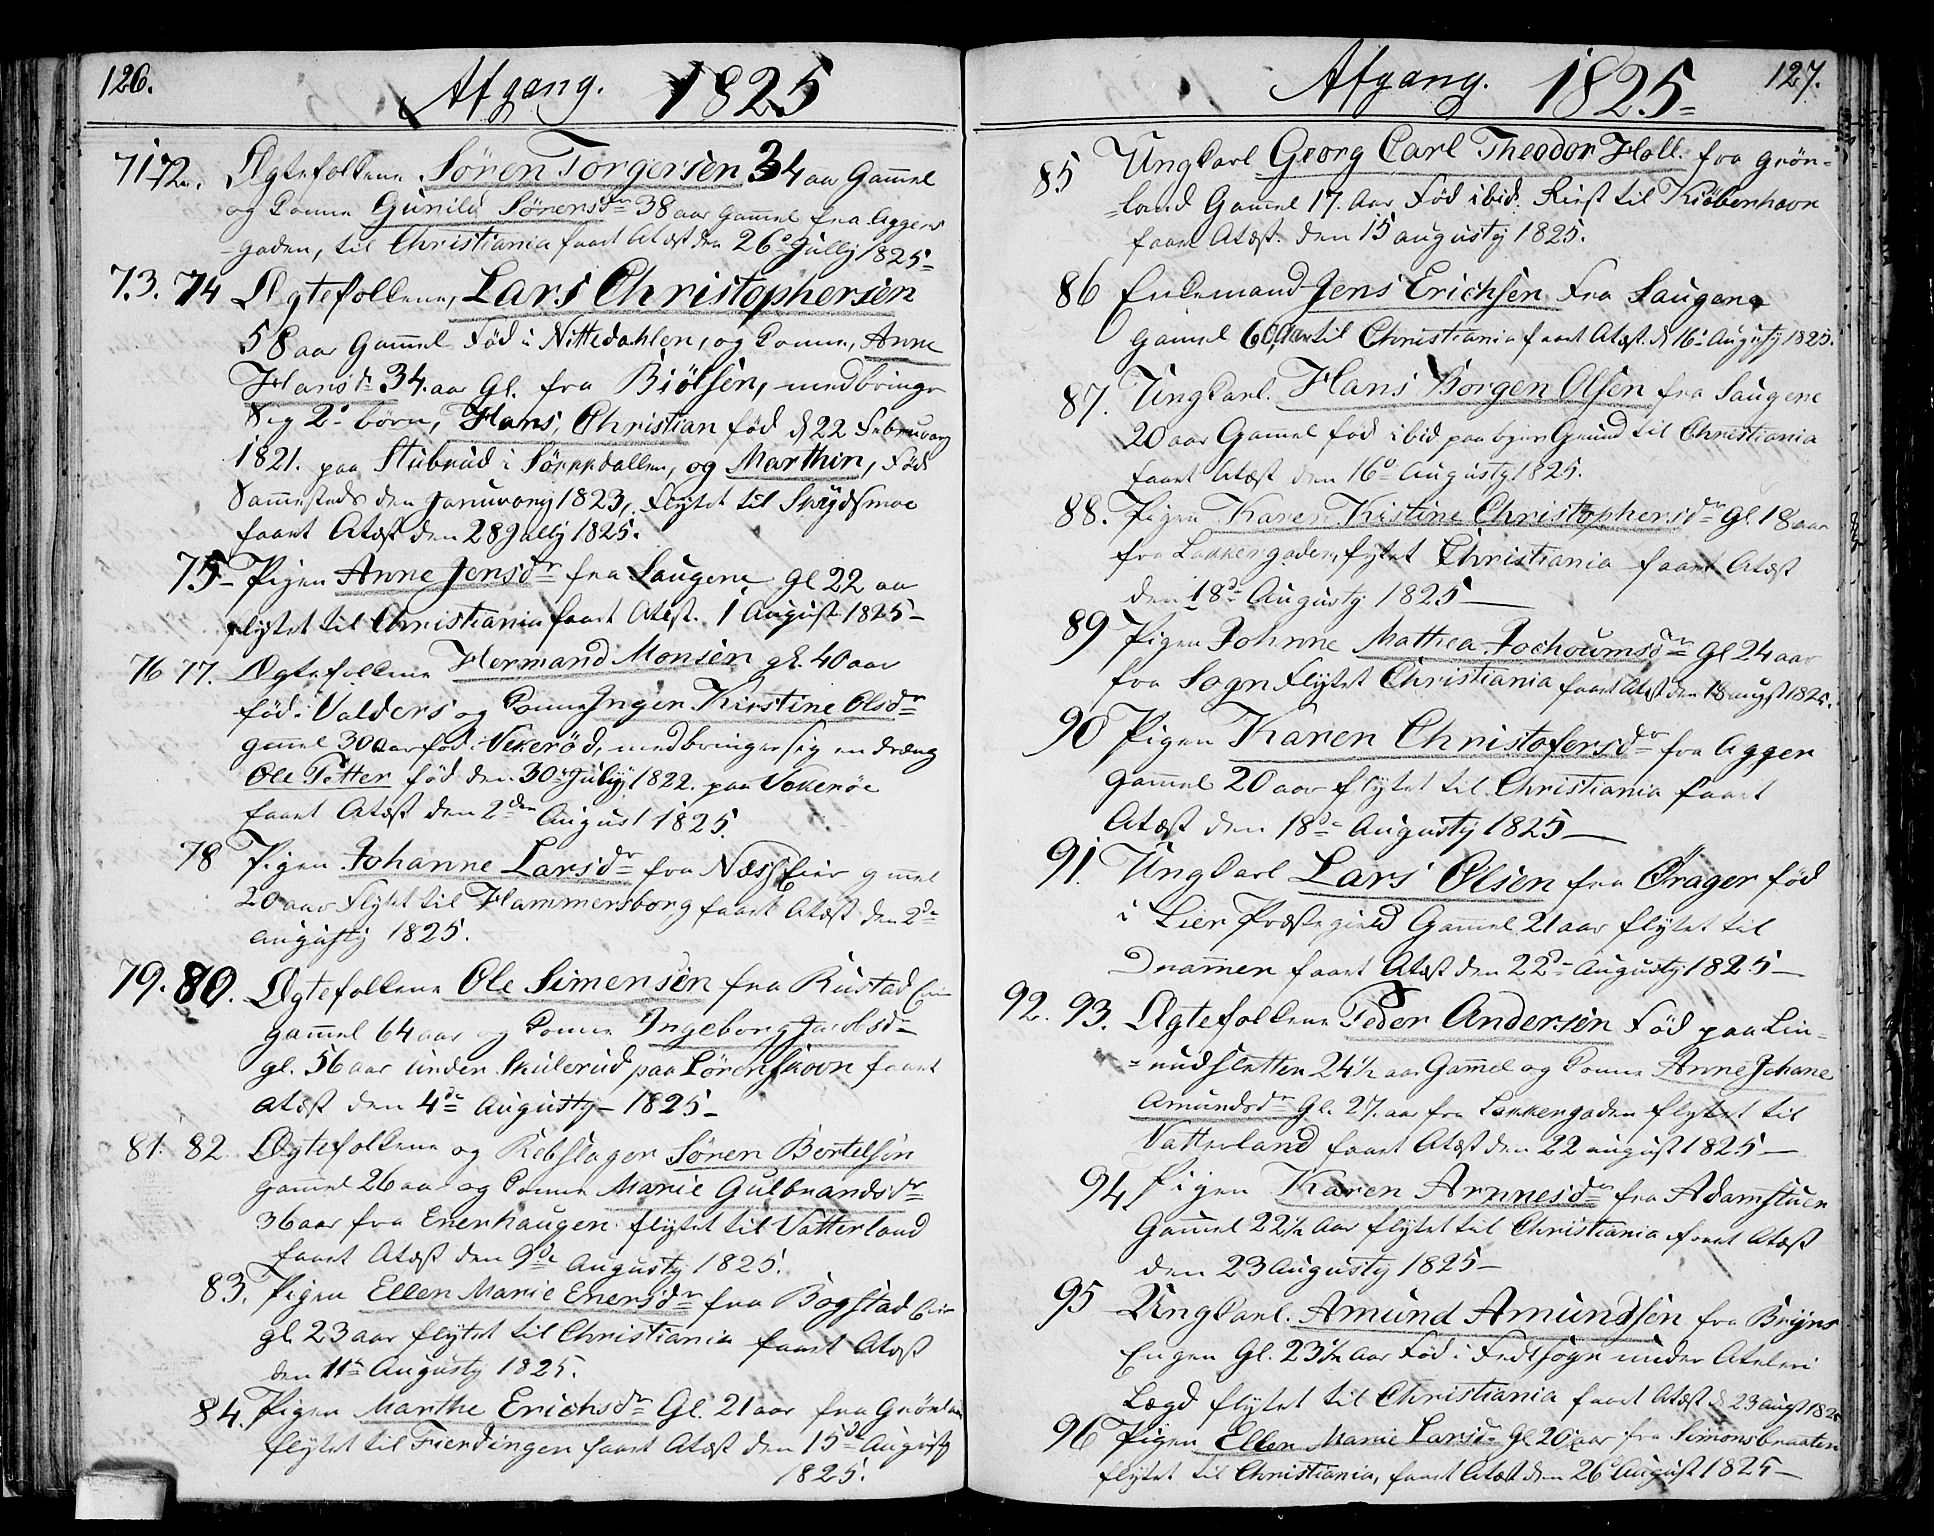 126. Afgang. 1825
71 72. Ægtefolkene Søren Torgersen 34 aar Gam̄el
og Konne Gunild Sørensdr 38 aar Gam̄el fra Aggers
gaden, til Christiania faaet Atæst den 26 Jully 1825
73. 74 Ægtefolkene, Lars Christophersen
58 aar Gam̄el Fød i Nittedahlen, og Konne, Anne
Hansdr 34 aar Gl. fra Biølsen, medbringer
Sig 2 børn, Hans Christian fød d 22 Februarÿ
1821. paa Stubrud i Sørkedallen, og Marthin, Fød
Sammesteds den Januwarij 1823, Flytet til
faaet Atæst den 28 Jullij 1825.
75 Pigen Anne Jensdr fra Saugene gl 22 aar
flytet til Christiania faaet Atæst. 1 August 1825
76 77. Ægtefolkene Hermand Monsen gl. 40 aar
fød i Valders og Konne Inger Kirstine Olsdr
gam̄el 30 aar fød i Vekerød, medbringer sig en dræng
Ole Petter fød den 30 Julij 1822. paa Vekerøe
faaet Atæst den 2den August 1825.
78 Pigen Johanne Larsdr fra Næss Eier gam̄el
20 aar Flytet til Hammersborg faaet Atæst den 2de
Augustij 1825.
79. 80. Ægtefolkene Ole Simensen fra Rustad Eier
Gam̄el 64 aar og Konne Ingeborg Jacobsdr
gl. 56 aar under Skulerud paa Lørenskovn faaet
Atæst den 4de Augustÿ 1825
81. 82. Ægtefolkene og Rebslager Søren Bertelsen
Gam̄el 26 aar og Konne Marie Gulbrandsdr
36 aar fra Enerhaugen flytet til Vatterland
faaet Atæst den 9de Augusty 1825.
83. Pigen Ellen Marie Enersdr fra Bogstad Eier
gl. 23 aar flytet til Christiania faaet Atæst
den 11te Augusty 1825.
84. Pigen Marthe Erichsdr Gl. 21 aar fra Grönland
flytet til Fierdingen faaet Atæst den 15de Augusty
1825.
Afgang. 1825 127.
85 Ungkarl Georg Carl Theodor Holl. fra Grön-
land Gam̄el 17. Aar Fød ibid. Reist til Kiöbenhavn
faaet Atæst. den 15 augustij 1825.
86 Enkemand Jens Erichsen Fra Saugene
Gam̄el 60 Aar til Christiania faaet Atæst d 16 Augusty 1825.
87. Ungkarl. Hans Borgen Olsen fra Saugene
20 aar Gam̄el fød ibid paa byens Grund til Christiania
faaet Atæst den 16 Augusty 1825.
88. Pigen Karen Kistine Christophersdr gl 18 aar
fra Lakkergaden, flytet Christiania faaet Atæst
den 18de Augusty 1825
89 Pigen Johnne Mathea Jochoumsdr Gl 24 aar
fra Sogn Flytet Christiania faaet Atæst den 18 augst 1825.
90 Pigen Karen Christofersdr fra Agger
gam̄el 20 aar flytet til Christiania faaet
Atæst den 18de Augustij 1825
91. Ungkarl Lars Olsen fra Ørager fød
i Lier Præstegield Gam̄el 21 aar flytet til
Dram̄en faaet Atæst den 22de Augusty 1825
92. 93. Ægtefolkene Peder Andersen Fød paa Lin-
rudsletten 24½ aar Gam̄el og Konne Anne Johane
Amundsdr Gl. 27. aar fra Lakkergaden flytet til
Vatterland faaet Atæst den 22 august 1825
94. Pigen Karen Arnnesdr fra Adamstuen
Gam̄el 22½ Aar flytet til Christiania faaet Atæst
den 23 Augusty 1825
95 Ungkarl. Amund Amundsen fra Bryns
Engen Gl. 23½ Aar Fød i Fedtsogn under
Lægd flytet til Christiania faaet Atæst d 23 Augst 1825
96 Pigen Ellen Marie Larsdr gl 20 aar fra Simonsbraaten
flytet til Christiania, faaet Atæst den 26 August 1825